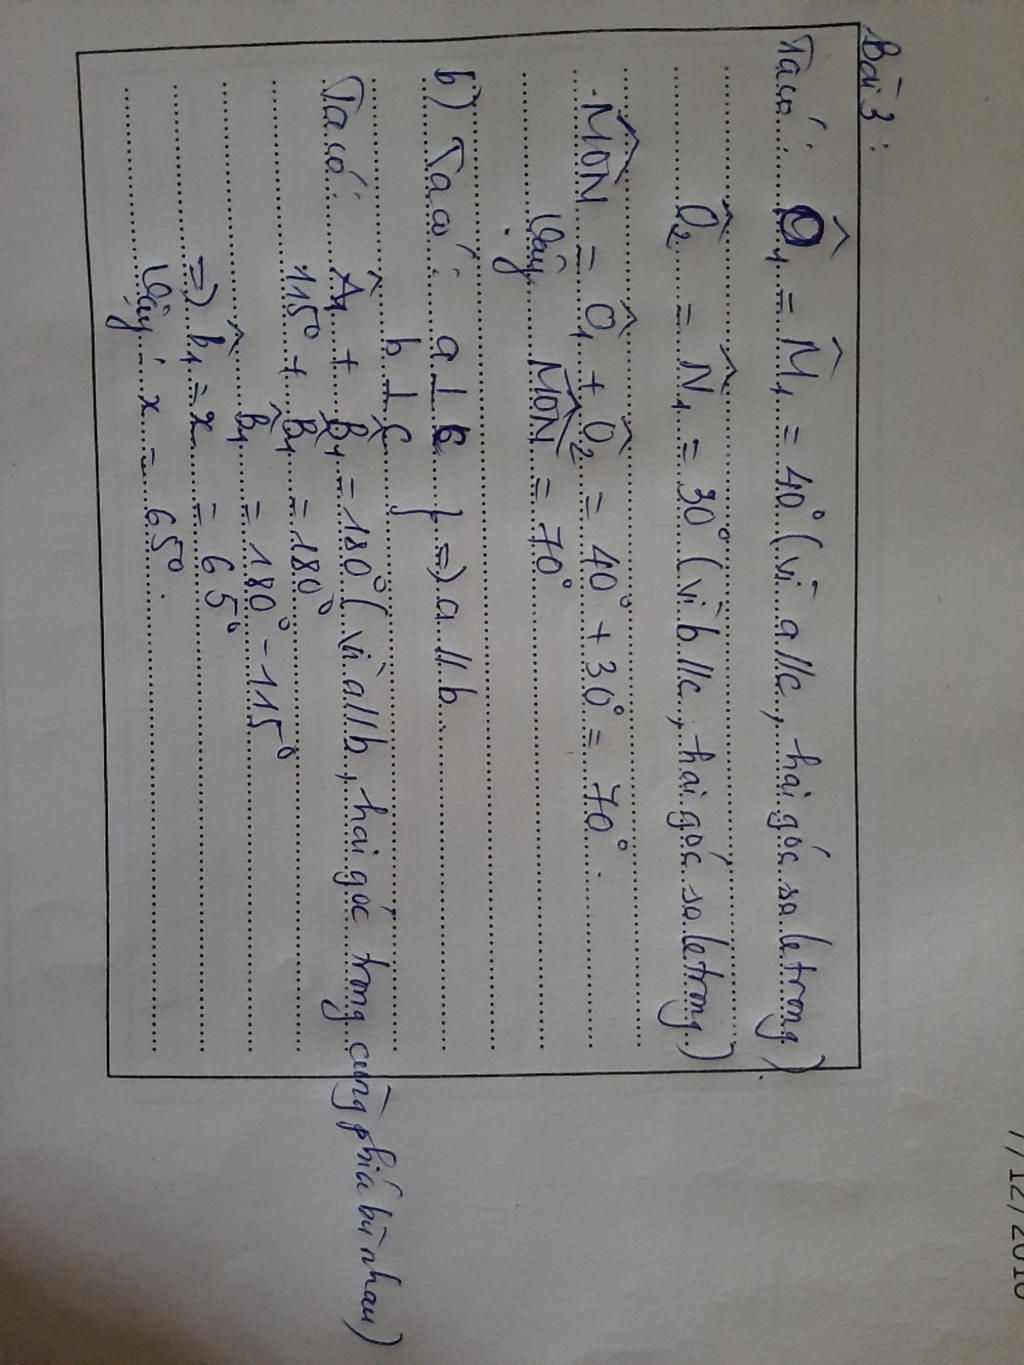 7/12/2016
Bài 3:
Ta có: Ô₁ = M̂₁ = 40° (vì a//c, hai góc so le trong)
Ô₂ = N̂₁ = 30° (vì b//c, hai góc so le trong)
M̂ON = Ô₁ + Ô₂ = 40° + 30° = 70°.
Vậy M̂ON = 70°
b) Ta có: a ⊥ c
b ⊥ c } => a // b
Ta có: Â₁ + B̂₁ = 180° (vì a//b, hai góc trong cùng phía bù nhau)
115° + B̂₁ = 180°
B̂₁ = 180° - 115°
=> b̂₁ = x = 65°
Vậy: x = 65°.